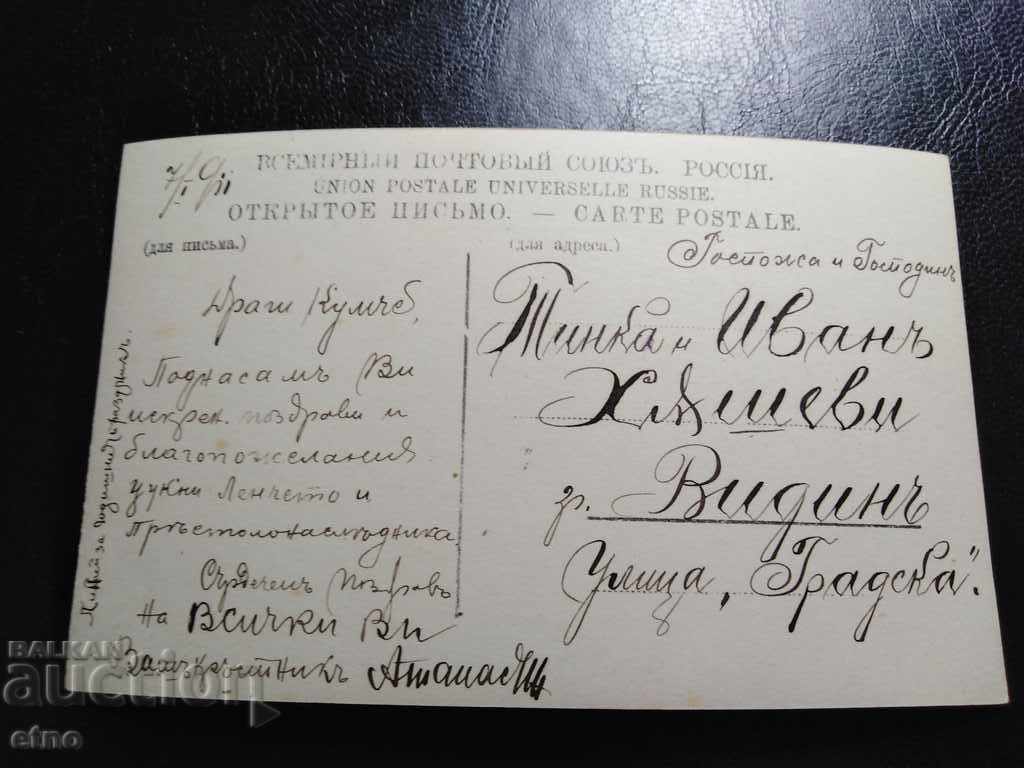 ВСЕМІРНЫЙ ПОЧТОВЫЙ СОЮЗЪ. РОССІЯ.
UNION POSTALE UNIVERSELLE RUSSIE.
ОТКРЫТОЕ ПИСЬМО. — CARTE POSTALE.
(для письма.)
Драги Кумче,
Поднасамъ Ви
искрен. поздрави и
благопожелания
цукни Ленчето и
Пръстолонаследника
Сърдеченъ поздравъ
на Всички Ви
кръстникъ Атанас
за годишние праздникъ.
(для адреса.)
Госпожа и Господинъ
Тинка и Иванъ
Хяшеви
гр. Видинъ
Улица „Градска".
BALKAN
auction
etno